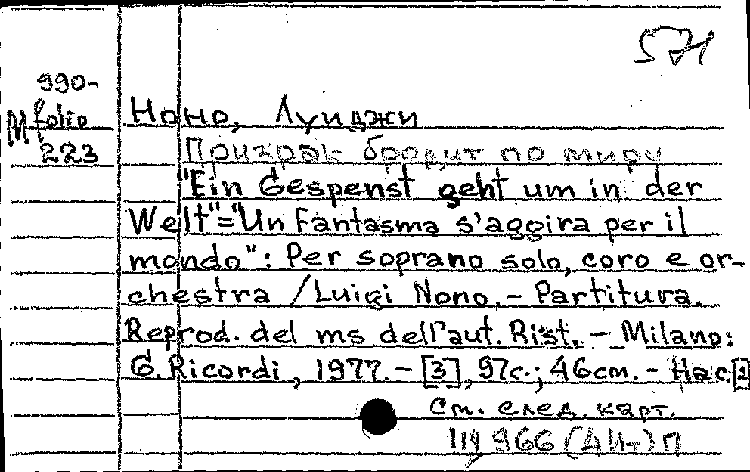 571
990-
M folio
223
Ноно, Луиджи
Призрак бродит по миру
"Ein Gespenst geht um in der
Welt"="Un Fantasma s'aggira per il
mondo": Per soprano solo, coro e or-
chestra / Luigi Nono.- Partitura.
Reprod. del ms dell'aut. Rist. - Milano:
G. Ricordi, 1977.- [3], 97с.; 46см.- Нас.[2
См. след. карт.
Щ 966 (4И-) П